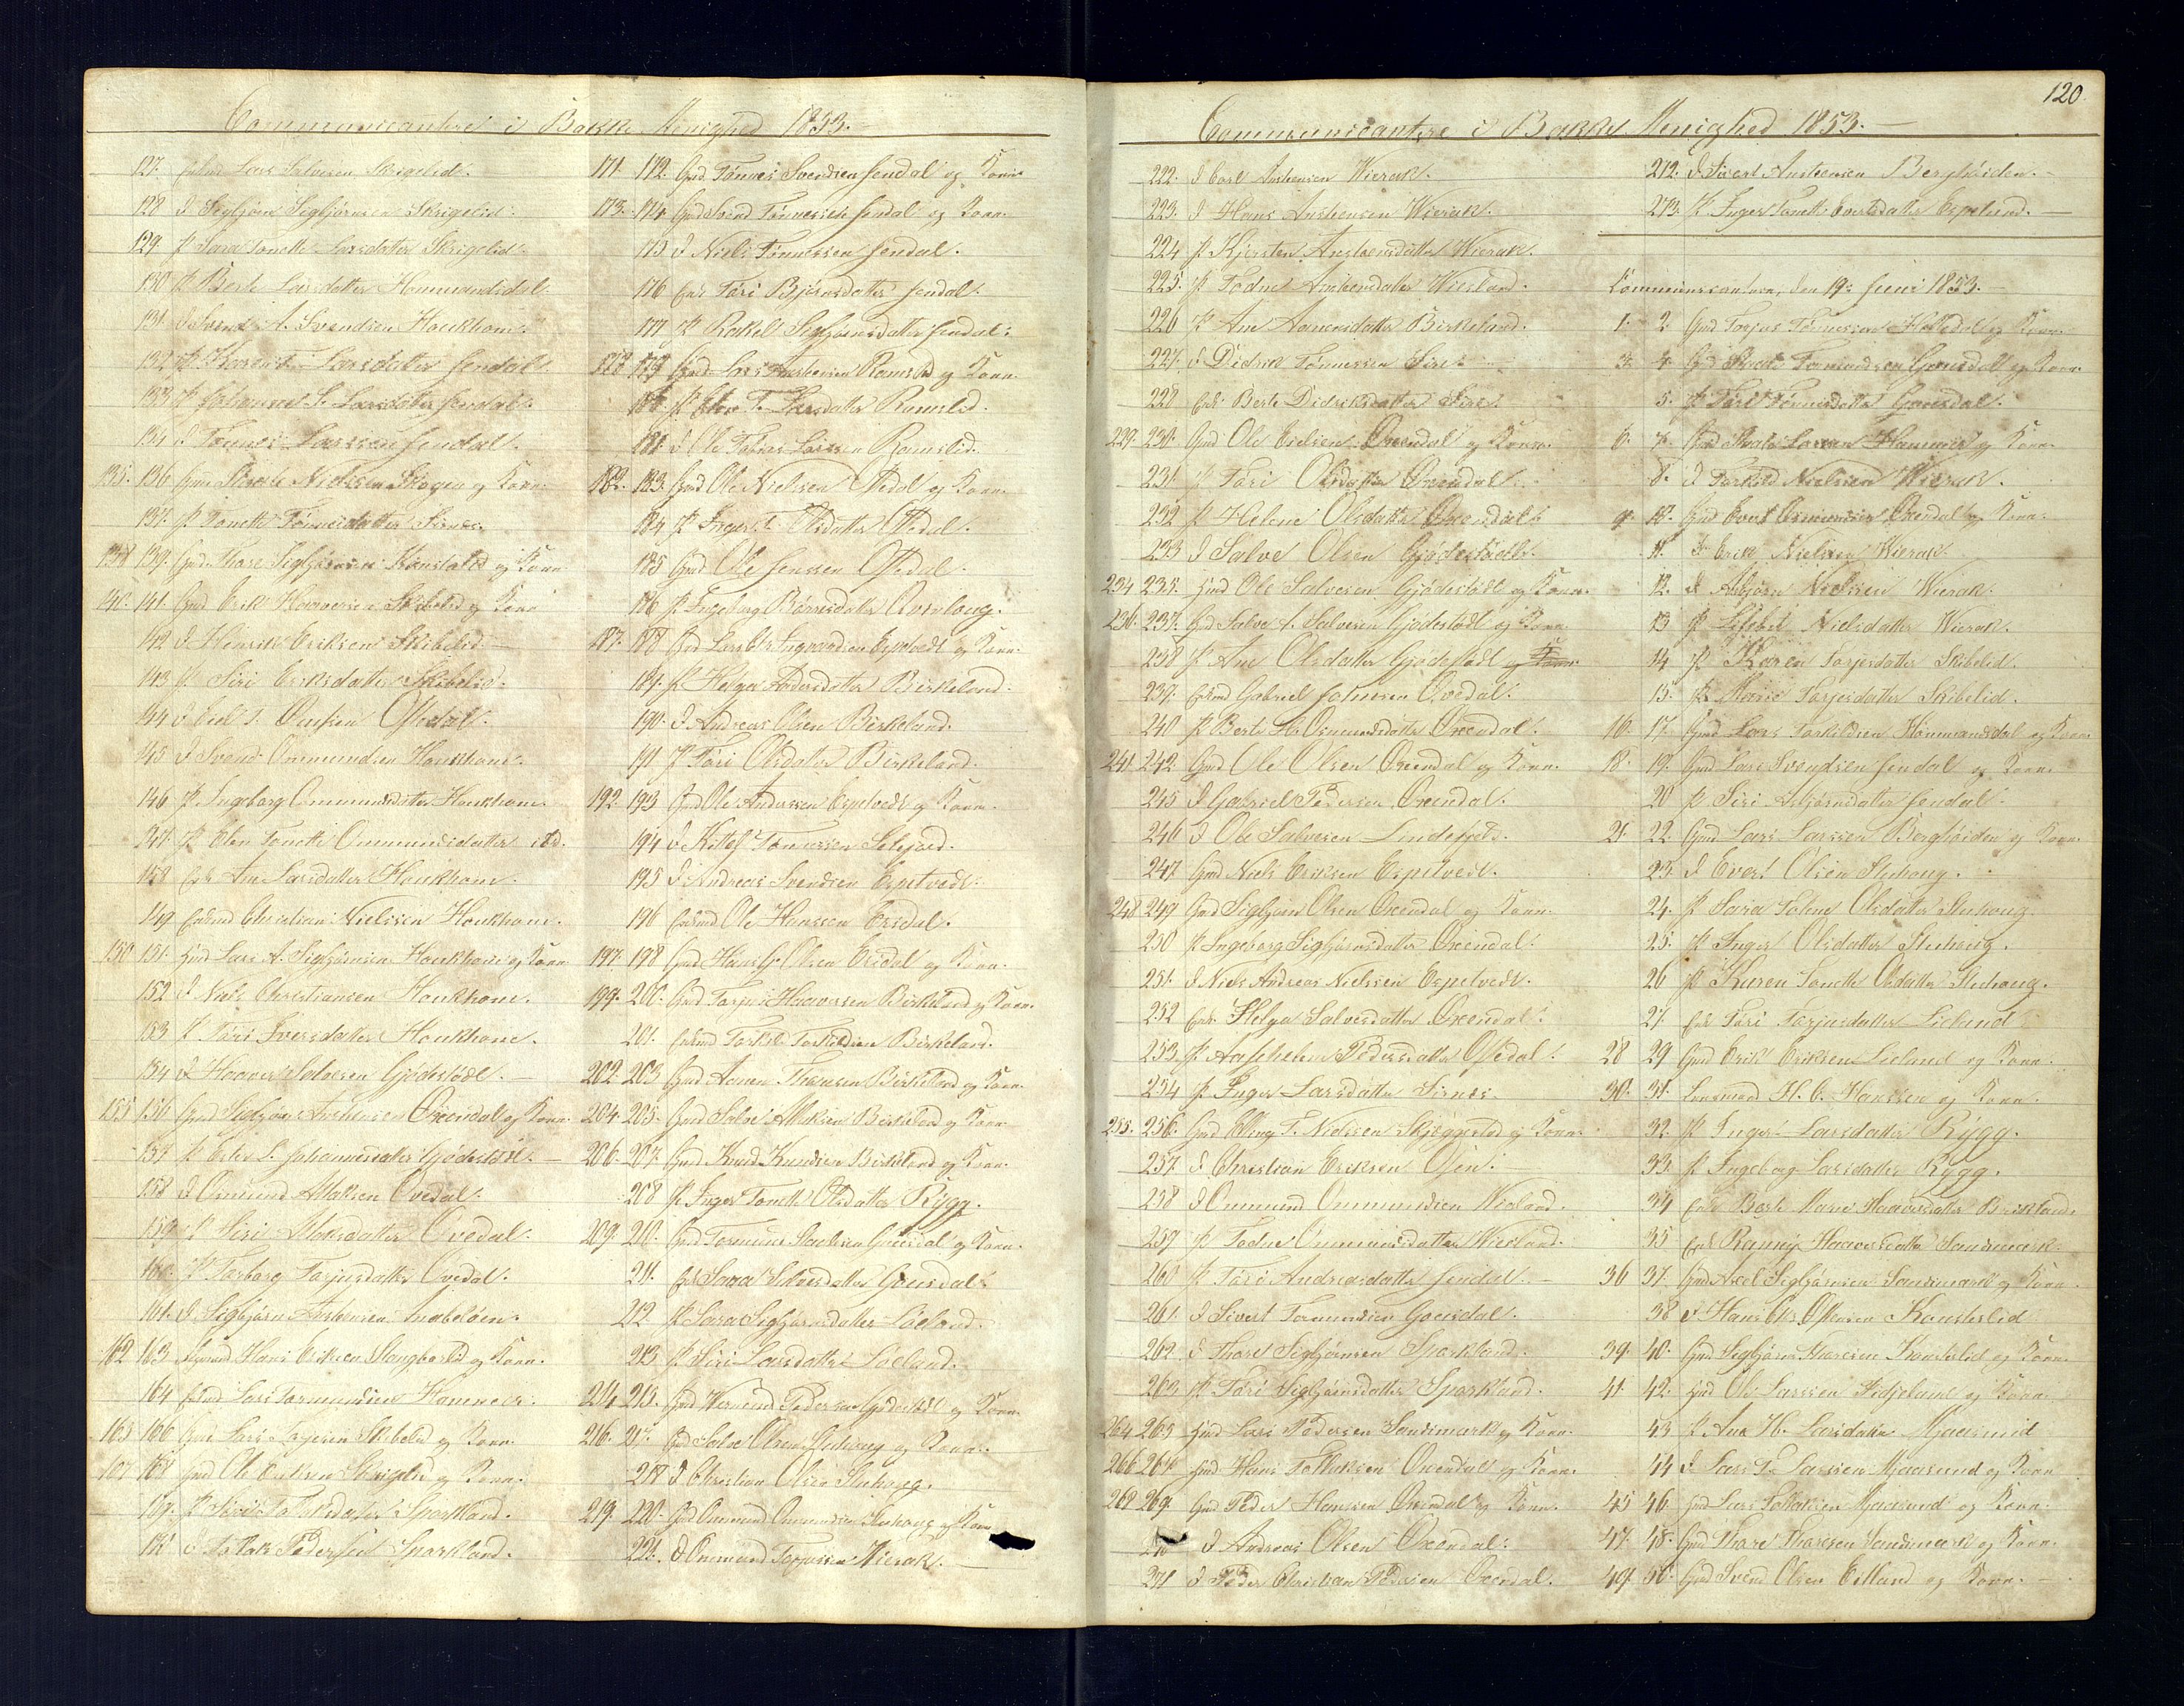 Communicantere i Bakke Menighed 1853.
127. Enkem Lars Salvesen Skrigelid.
128 J Sigbjørn Sigbjørnsen Skrigelid.
129 P Sara Tonette Larsdatter Skrigelid.
130 P Berte Larsdatter Hommandsdal.
131. J Svend A. Svendsen Houkhom.
132 P Karen T. Larsdatter Jendal.
133 P Johanne S. Larsdatter Jendal.
134 J Tønnes Larssen Jendal.
135. 136. Gmd Nielsen Skogen og Kone.
137. P Tonette Tønnesdatter Sirnes.
138 139. Gmd. Thore Sigbjørnsen og Kone
140. 141. Gmd Erik Haaversen Skibelid og Kone
142 J Henrik Eriksen Skibelid
143 P Siri Eriksdatter Skibelid.
144 J T. Omsen Ofsedal.
145 J Svend Ommundsen Houkhom.
146. P Ingeborg Ommundsdatter Houkhom.
147. P Elen Tonette Ommundsdatter ibd.
148 Enk Ane Larsdatter Houkhom.
149 Enkmd Christian Nielssen Houkhom.
150 151. Gmd Lars A. Sigbjørnsen Houkhom og Kone
152 J Niels Christiansen Houkhom.
153 P Tari Iversdatter Houkhom.
154 J Haaver Salvesen Gjødestødl.
155 156. Gmd Sigbjørn Anstensen Øxendal og Kone.
157 P S. Johannesdatter Gjødestødl.
158 J Ommund Atlaksen Øvedal.
159 P Siri Atlaksdatter Øvedal.
160. P Torborg Torjusdatter Øvedal.
161. J Sigbjørn Anstensen
162 163 Gmd Hans Eriksen og Kone.
164 Enkmd Lars Tormundsen Hammer.
165 166 Gmd Lars Torjesen Skibelid og Kone.
167 168 Gmd Ole Eriksen Skrigelid og Kone.
169. P Siri Tollaksdatter Sparkland.
170. J Tollak Pedersen Sparkland.
171. 172. Gmd Tønnes Svendsen Jendal og Kone
173. 174. Gmd Svend Tønnessen Jendal og Kone.
175 J Niels Tønnessen Jendal.
176 Enk Tari Bjørnsdatter Jendal.
177 P Rakel Sigbjørnsdatter Jendal.
178 179 Gmd Lars Anstensen Ramslid og Kone.
180. P Elen T. Larsdatter Ramslid.
181 J Ole Tobias Larssen Ramslid.
182. 183. Gmd Ole Nielssen Ofsedal og Kone.
184 P Inger T. Olsdatter Ofsedal.
185 Gmd Ole Jenssen Ofsedal.
186 P Ingeborg
187. 188 Gmd Lars Chr Ingvardsen Espetvedt og Kone.
189. P Helga Andersdatter Birkeland.
190. J Andreas Olsen Birkeland.
191 P Tari Olsdatter Birkeland.
192. 193 Gmd Ole Anderssen Espetvedt og Kone.
194 J Kittel Tønnessen Selejord.
195 J Andreas Svendsen Espetvedt.
196 Enkmd Ole Hanssen Ersdal.
197. 198 Gmd Hans G. Olsen Ersdal og Kone.
199. 200. Gmd Torjus Haaversen Birkeland og Kone.
201. Enkmd Torkil Torkildsen Birkeland.
202. 203 Gmd Aanen Thorsen Birkeland og Kone.
204. 205. Gmd Salve Atlaksen Birkeland og Kone.
206. 207. Gmd Knud Knudsen Birkeland og Kone.
208 P Inger Tonette Olsdatter Rygg.
209. 210. Gmd Tormund og Kone.
211. Enk Sara Salvesdatter Gousdal.
212 P Sara Sigbjørnsdatter Loeland.
213. P Siri Larsdatter Loeland.
214. 215. Gmd Wermund Pedersen Gjødestødl og Kone.
216. 217. Gmd Salve Olsen Stuhoug og Kone.
218 J Christian Olsen Stuhoug.
219. 220. Gmd Ommund Ommundsen Stuhoug og Kone
221. J Ommund Torjussen Wierak.
120.
Communicantere i Bakke Menighed 1853.
222. J Carl Anstensen Wierak.
223. J Hans Anstensen Wierak.
224 P Kjersten Anstensdatter Wierak.
225. P Todne Anstensdatter Wiesland.
226 P Ane Aanensdatter Birkeland.
227. J Didrik Tønnessen Sire.
228 Enk. Berte Didriksdatter Sire.
229. 230. Gmd Ole Eielsen Øxendal og Kone.
231. P Tari Olsdatter Øxendal.
232 P Helene Olsdatter Øxendal.
233 J Salve Olsen Gjødestødl.
234 235. Gmd Ole Salvesen Gjødestødl og Kone.
236. 237. Gmd Salve S. Salvesen Gjødestødl og Kone.
238 P Ane Olsdatter Gjødestødl og Kone.
239. Enkmd Gabriel Johnsen Øvedal.
240 P Berte H. Osmundsdatter Øxendal.
241 242 Gmd Ole Olsen Øxendal og Kone.
245 J Gabriel Pedersen Øxendal.
246 J Ole Salvesen Lindefjeld.
247 Gmd Niels Eriksen Espetvedt.
248 249 Gmd Sigbjørn Olsen Øxendal og Kone.
250 P Ingeborg Sigbjørnsdatter Øxendal.
251. J Niels Andreas Nielssen Espetvedt.
252 Enk. Helga Salvesdatter Øxendal.
253. P Pedersdatter Ofsedal.
254 P Inger Larsdatter Sirnes.
255. 256. Gmd Elling T. Nielssen Skjeggestad og Kone.
257. J Christian Eriksen Osen.
258 J Ommund Ommundsen Wieland.
259 P Todne Ommundsdatter Wierland.
260 P Tari Andreasdatter Jendal.
261. J Sivert Tormundsen Gousdal.
262. J Thore Sigbjørnsen Sparkland.
263 P Tari Sigbjørnsdatter Sparkland.
264 265 Gmd Lars Pedersen Sandsmark og Kone.
266 267 Gmd Hans Tollaksen Øxendal og Kone.
268 269. Gmd Peder Hanssen Øxendal og Kone.
270 J Andreas Olsen Øxendal.
271 J Peder Christian Pedersen Øxendal.
272. J Sivert Anstensen Bergheiden.
273. P Inger Tonette Evertsdatter Espelund.
Communicantere, den 19de Juni 1853.
1. 2. Gmd Torjus Tønnessen og Kone.
3. 4. Gmd Tormundsen Gousdal og Kone.
5. P Tari Tønnesdatter Gousdal.
6. 7. Gmd Larssen Hammer og Kone.
8. J Torkild Nielssen Wierak.
9. 10. Gmd Evert Osmundsen Øxendal og Kone.
11. J Erik Nielsen Wierak.
12. J Asbjørn Nielssen Wierak.
13 P Lisbet Nielsdatter Wierak.
14 P Karen Torjesdatter Skibelid.
15. P Marie Torjesdatter Skibelid.
16. 17. Gmd Lars Torkildsen Hommandsdal og Kone
18. 19. Gmd Lars Svendsen Jendal og Kone.
20 P Siri Asbjørnsdatter Jendal.
21. 22. Gmd Lars Larssen Bergheiden og Kone.
23. J Evert Olsen Stuhoug.
24. P Sara Toline Olsdatter Stuhoug.
25. P Inger Olsdatter Stuhoug.
26 P Karen Tonette Olsdatter Stuhoug.
27. Enk Tari Torjusdatter Lieland
28 29 Gmd Erik Eriksen Lieland og Kone.
30. 31. Lensmand H. C. Hanssen og Kone.
32. P Inger Larsdatter Rygg.
33. P Ingeborg Larsdatter Rygg.
34 Enk Berte Marie Haaversdatter Birkeland.
35 Enk Ranny Haaversdatter Sandsmark.
36 37. Gmd Axel Sigbjørnsen Sandsmark og Kone.
38 J Hans Chr. Olsensen Konsterlid
39. 40. Gmd Sigbjørn Thoresen Konsterlid og Kone.
41. 42. Gmd Ole Larssen og Kone.
43 P Ane H. Larsdatter Mjaasund
44 J Lars T. Larssen Mjaasund og Kone
45 46. Gmd Lars Tollaksen Mjaasund og Kone.
47. 48. Gmd Thore Thoresen Sandsmark og Kone.
49. 50. Gmd Svend Olsen Eilland og Kone.